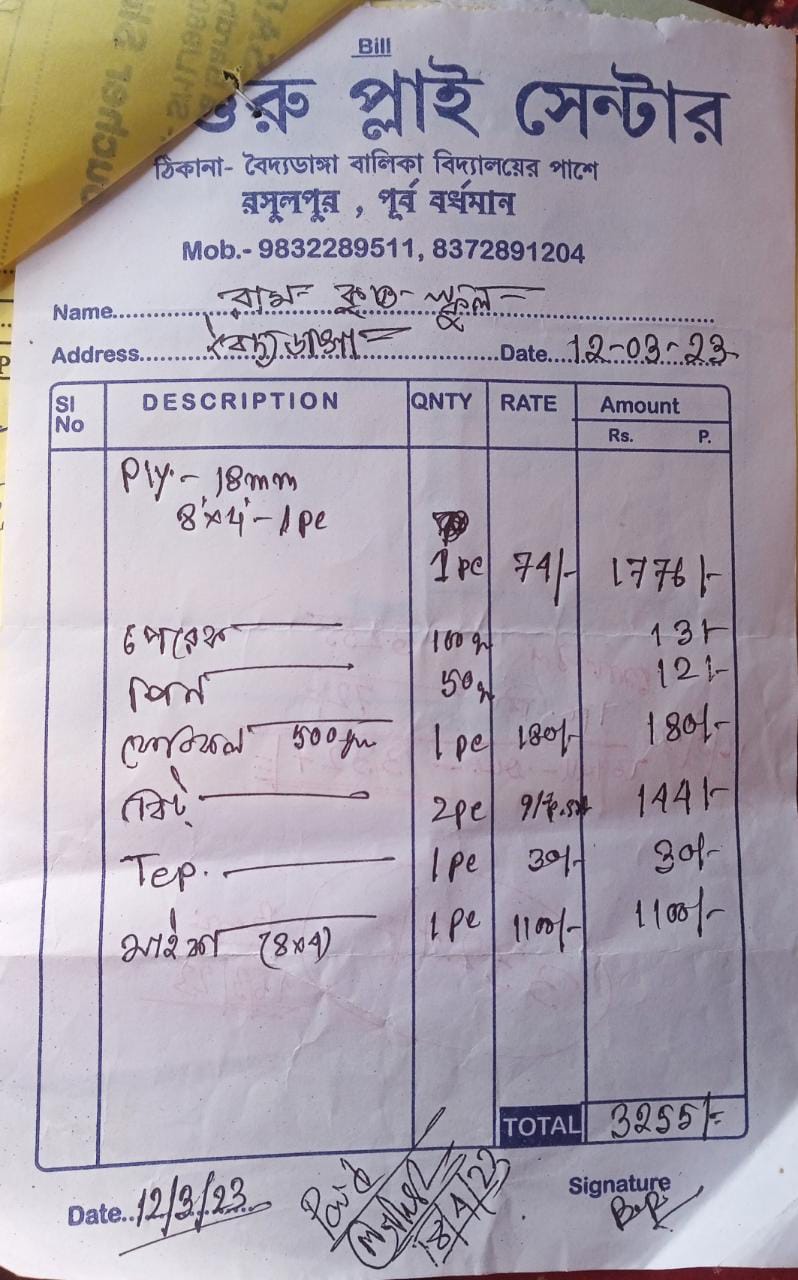 Bill
গুরু প্লাই সেন্টার
ঠিকানা- বৈদ্যডাঙ্গা বালিকা বিদ্যালয়ের পাশে
রসুলপুর , পূর্ব বর্ধমান
Mob.- 9832289511, 8372891204
Name.... রামকৃষ্ণ স্কুল
Address.... বৈদ্যডাঙ্গা Date.... 12-03-23
Sl No DESCRIPTION QNTY RATE Amount
Rs. P.
Ply - 18mm
8'x4' - 1pc
1 pc 74/- 1776/-
পেরেক 100 13/-
পিন 50 12/-
ফেবিকল 500gm 1 pc 180/- 180/-
বিট্ 2pc 144/-
Tep. 1 pc 30/- 30/-
মাইকা (8x4) 1 pc 1100/- 1100/-
TOTAL 3255/-
Date.. 12/3/23 Paid 18/4/23 Signature